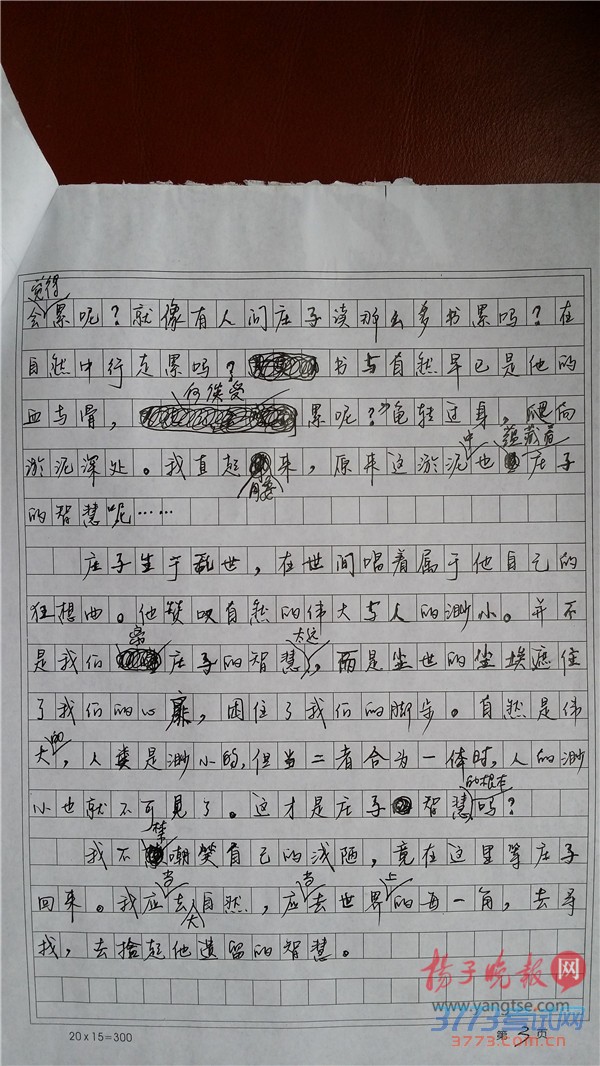 觉得
会累呢？就像有人问庄子读那么多书累吗？在
自然中行走累吗？书与自然早已是他的
何谈受
血与骨，累呢？”龟转过身，爬向
中 蕴藏着
淤泥深处。我直起来，原来这淤泥也庄子
腰
的智慧呢……
庄子生于乱世，在世间唱着属于他自己的
狂想曲。他赞叹自然的伟大与人的渺小。并不
离 太远
是我们庄子的智慧，而是尘世的尘埃遮住
了我们的心扉，困住了我们的脚步。自然是伟
的
大，人类是渺小的，但当二者合为一体时，人的渺
的根本
小也就不可见了。这才是庄子智慧吗？
禁
我不嘲笑自己的浅陋，竟在这里等庄子
当 当 上
回来。我应去自然，应去世界的每一角，去寻
大
找，去拾起他遗留的智慧。
扬子晚报网
www.yangtse.com
3773考试网
3773.com.cn
20×15=300
第 3 页